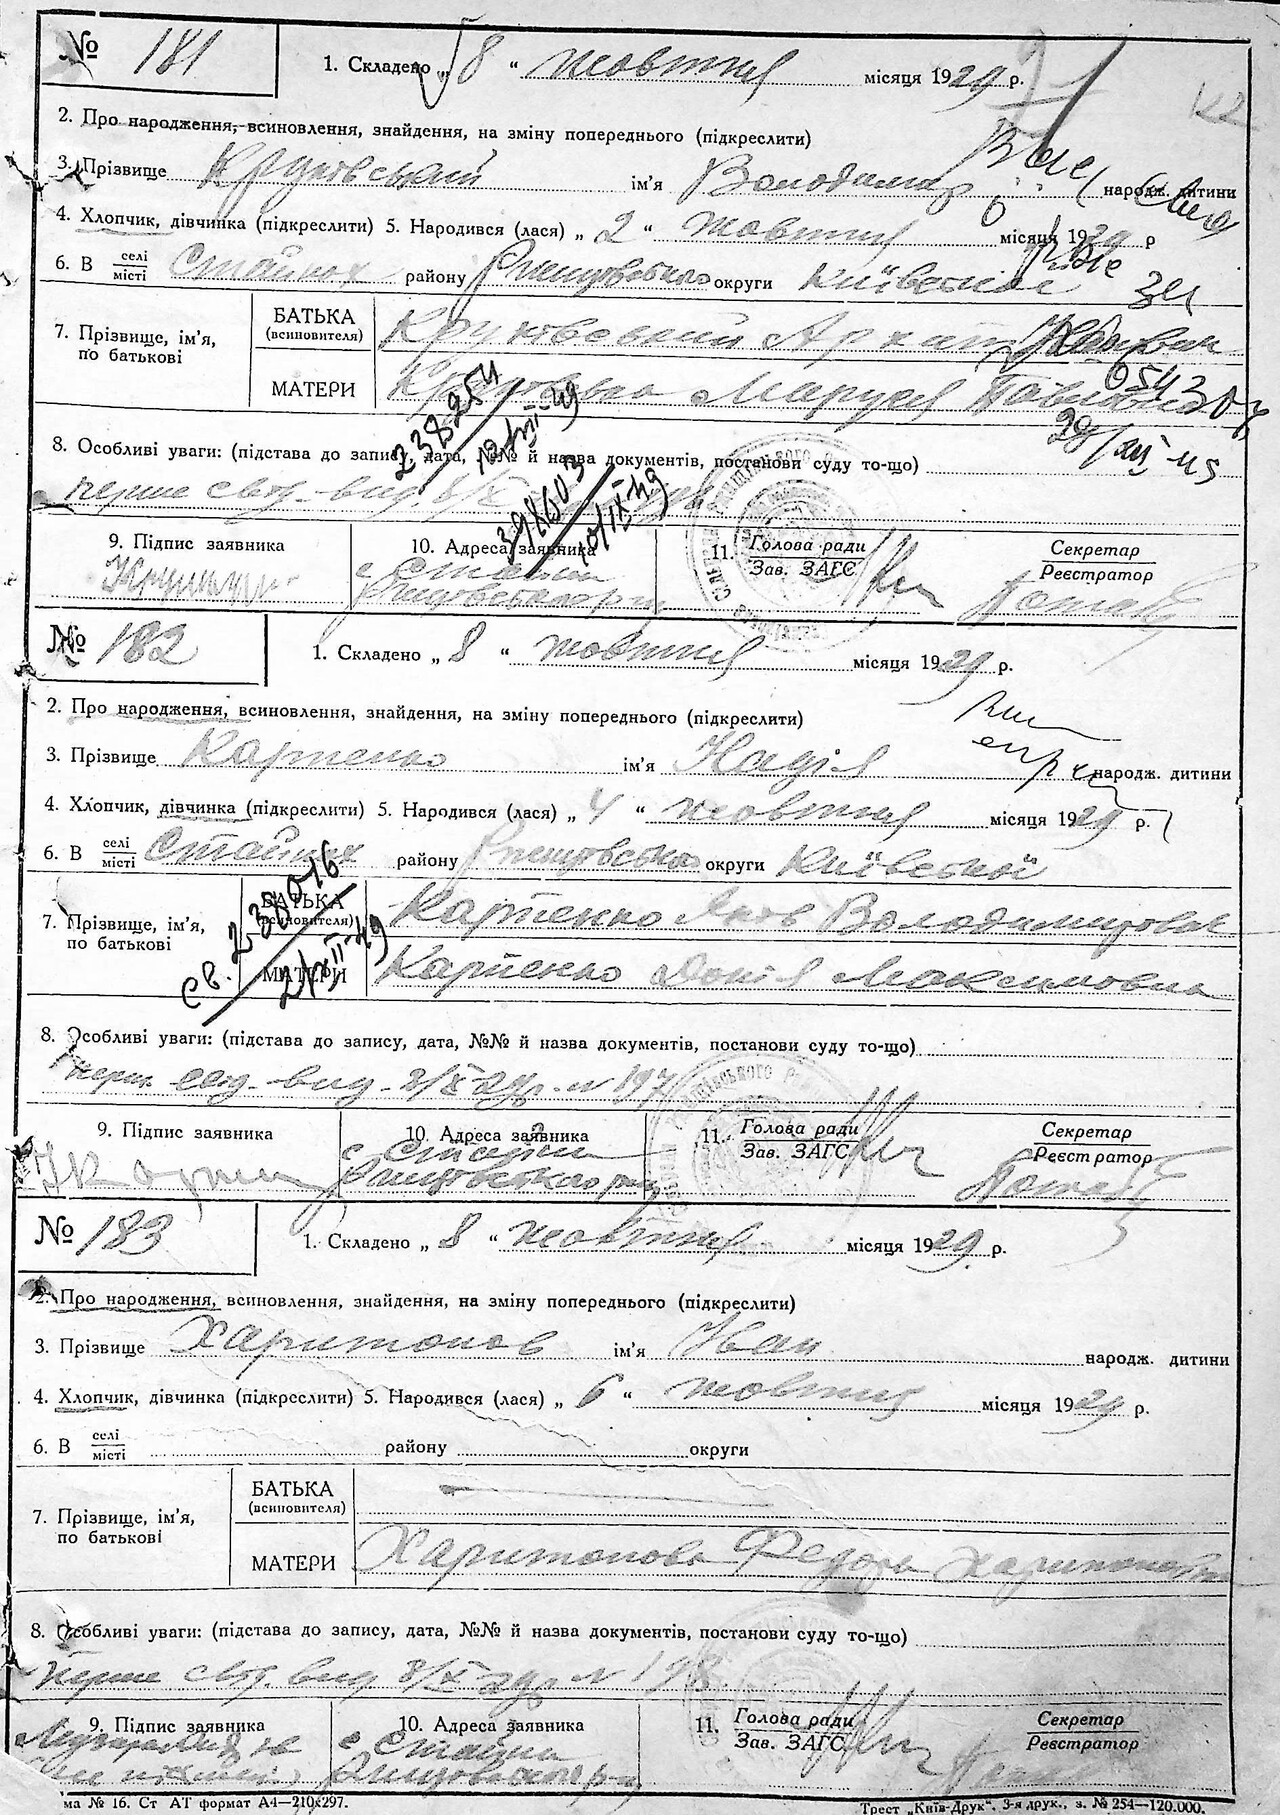 № 181 1. Складено „ 8 “ жовтня місяця 1929 р.
2. Про народження, всиновлення, знайдення, на зміну попереднього (підкреслити)
3. Прізвище ім'я Володимир народж. дитини
4. Хлопчик, дівчинка (підкреслити) 5. Народився (лася) „ 2 “ жовтня місяця 1929 р
6. В селі/місті Стайках району Ржищівського округи Київської
7. Прізвище, ім'я, по батькові
БАТЬКА (всиновителя)
МАТЕРИ Маруся
238254
12/XII-49
054307
8. Особливі уваги: (підстава до запису, дата, №№ й назва документів, постанови суду то-що)
перше свід. вид. 8/X
394603
10/IX-49
9. Підпис заявника 10. Адреса заявника 11. Голова ради/Зав. ЗАГС Секретар/Реєстратор
с Стайки
№ 182 1. Складено „ 8 “ жовтня місяця 1929 р.
2. Про народження, всиновлення, знайдення, на зміну попереднього (підкреслити)
3. Прізвище Карпенко ім'я Надія народж. дитини
4. Хлопчик, дівчинка (підкреслити) 5. Народився (лася) „ 4 “ жовтня місяця 1929 р.
6. В селі/місті Стайках району Ржищівського округи Київської
7. Прізвище, ім'я, по батькові
БАТЬКА (всиновителя) Карпенко Яков Володимирович
МАТЕРИ Карпенко Докія Максимовна
св. 238016
2/XII-49
8. Особливі уваги: (підстава до запису, дата, №№ й назва документів, постанови суду то-що)
перш. свід. вид. 8/X 29р. № 197
9. Підпис заявника 10. Адреса заявника 11. Голова ради/Зав. ЗАГС Секретар/Реєстратор
с Стайки
№ 183 1. Складено „ 8 “ жовтня місяця 1929 р.
2. Про народження, всиновлення, знайдення, на зміну попереднього (підкреслити)
3. Прізвище Харитонов ім'я Іван народж. дитини
4. Хлопчик, дівчинка (підкреслити) 5. Народився (лася) „ 6 “ жовтня місяця 1929 р.
6. В селі/місті району округи
7. Прізвище, ім'я, по батькові
БАТЬКА (всиновителя)
МАТЕРИ Харитонова Федора Харитоновна
8. Особливі уваги: (підстава до запису, дата, №№ й назва документів, постанови суду то-що)
перше свід. вид 8/X 29р № 198
9. Підпис заявника 10. Адреса заявника 11. Голова ради/Зав. ЗАГС Секретар/Реєстратор
с Стайки
ма № 16. Ст АТ формат А4—210х297. Трест „Київ-Друк“. 3-я друк., з. № 254—120.000.